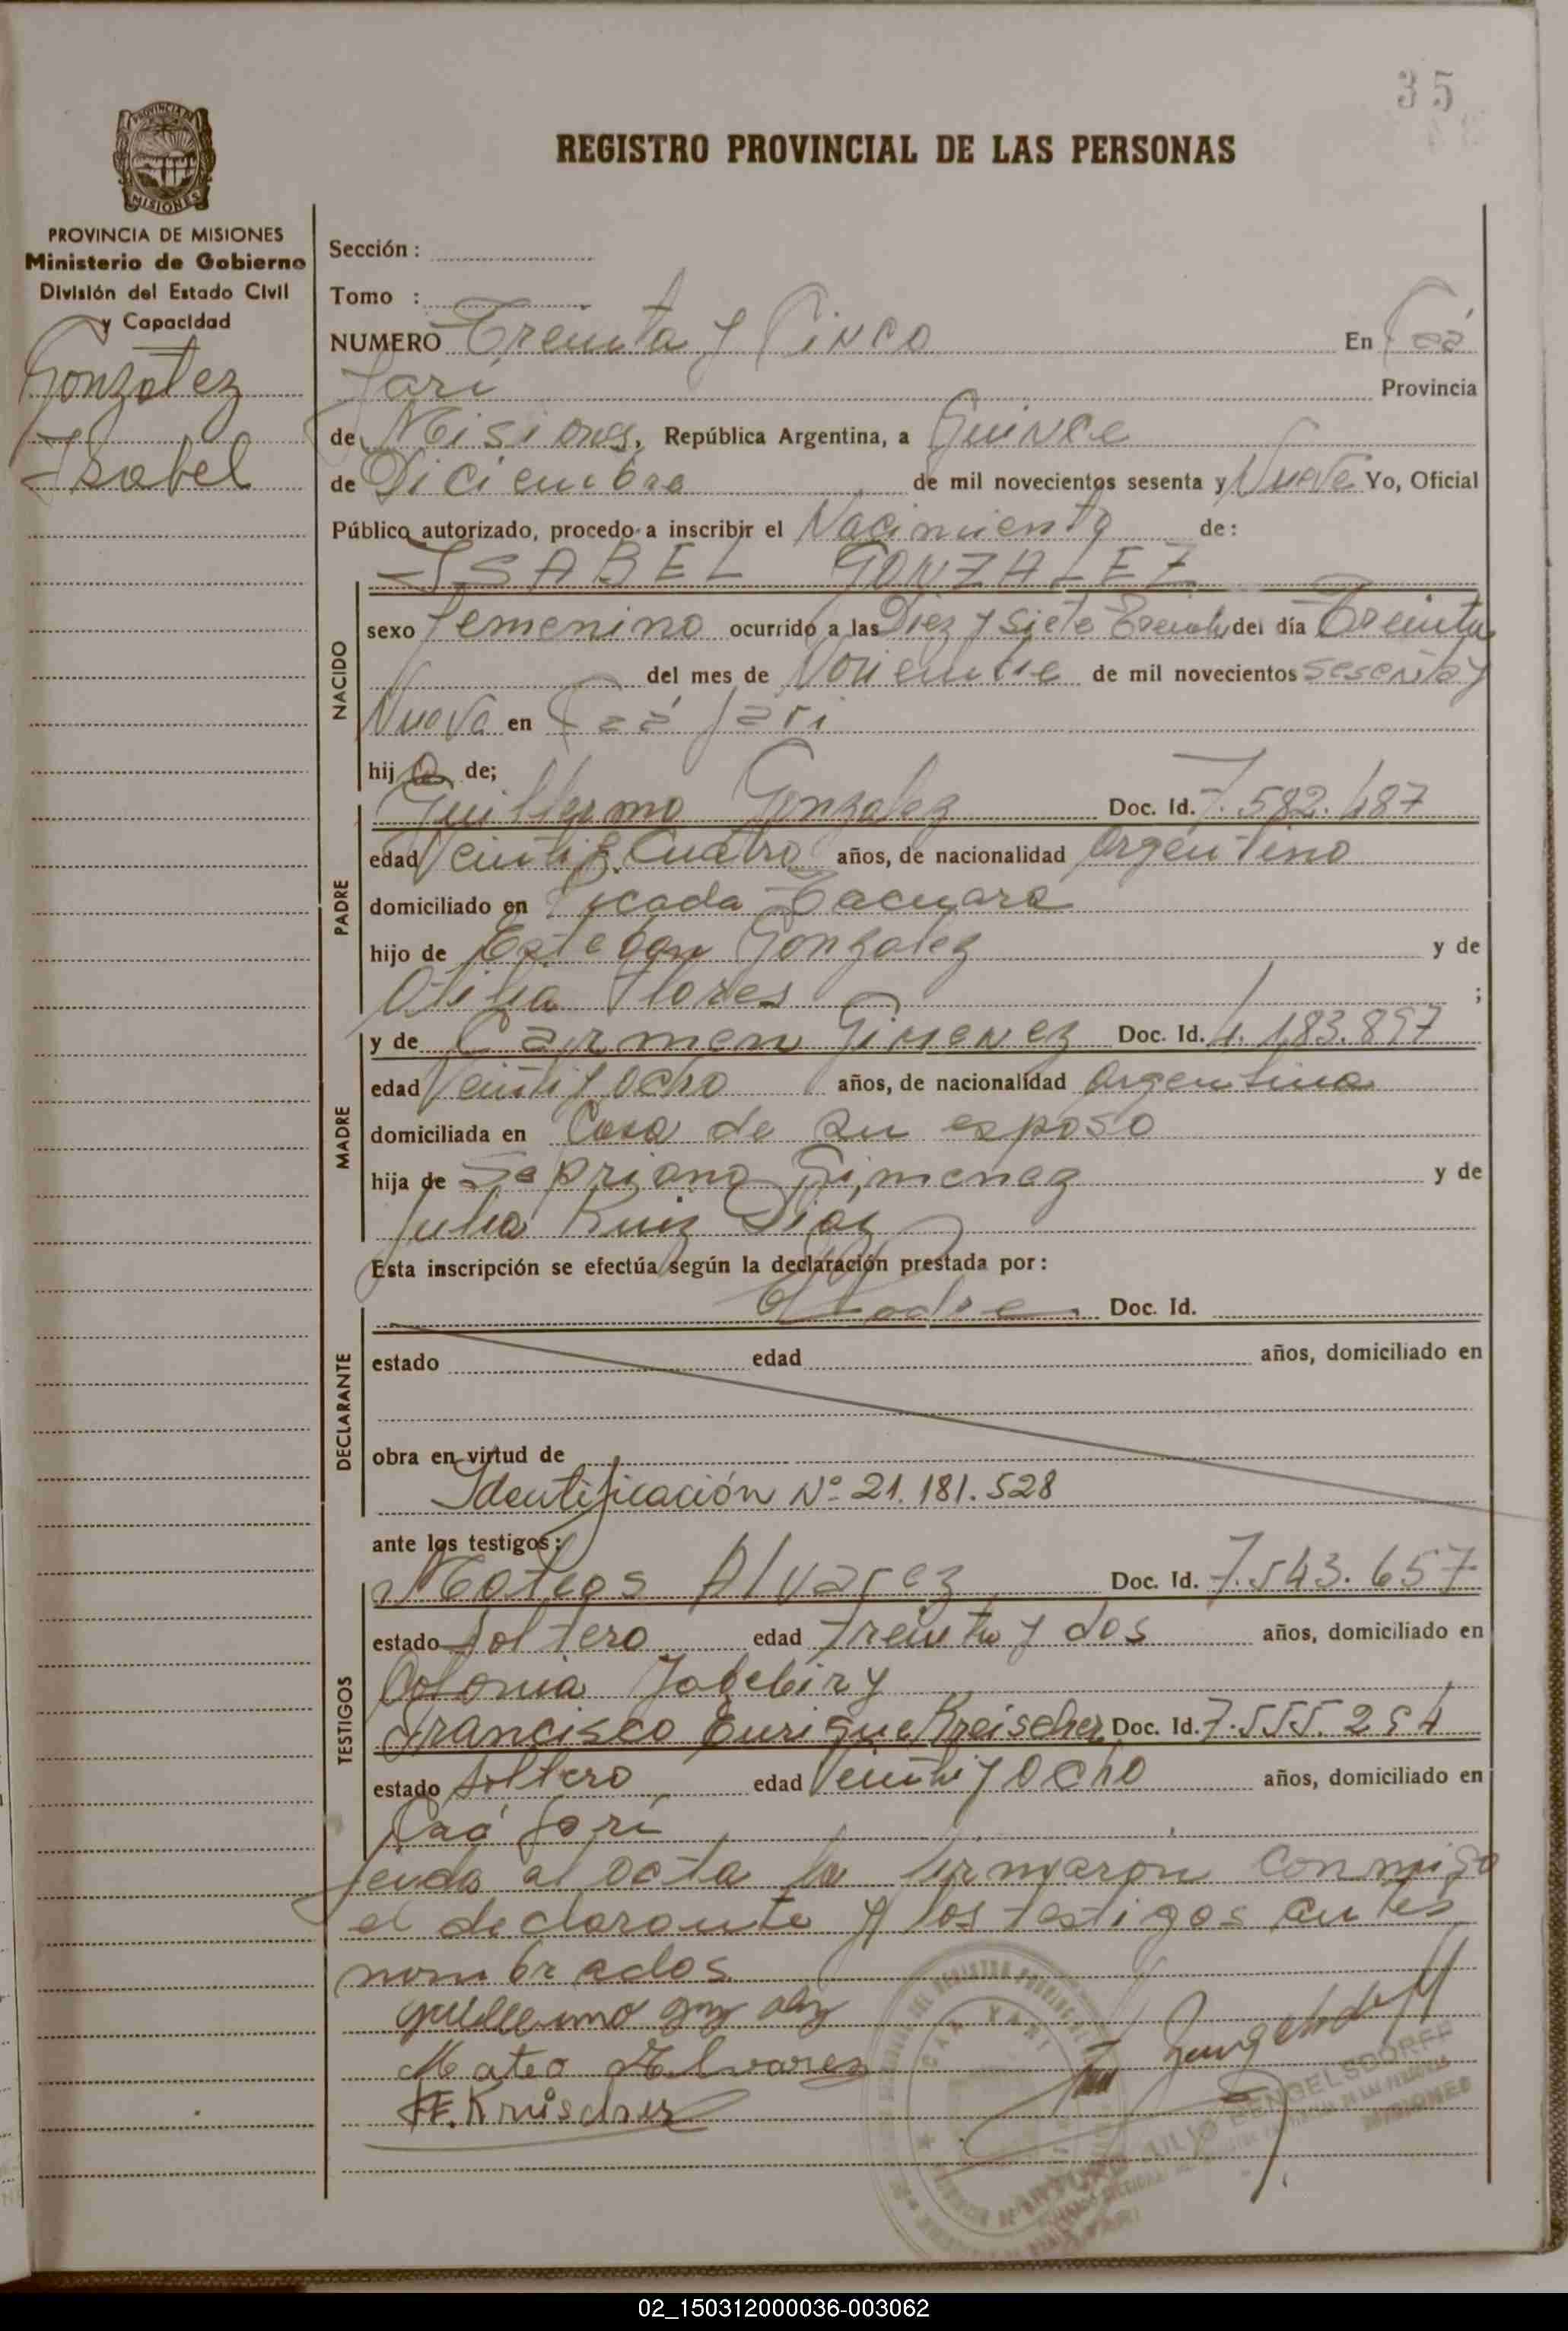 35
REGISTRO PROVINCIAL DE LAS PERSONAS
PROVINCIA DE
MISIONES
PROVINCIA DE MISIONES
Ministerio de Gobierno
División del Estado Civil
y Capacidad
Gonzalez
Isabel
Sección :
Tomo :
NUMERO Treinta y Cinco En Caá
Yari Provincia
de Misiones, República Argentina, a Quince
de Diciembre de mil novecientos sesenta y Nueve Yo, Oficial
Público autorizado, procedo a inscribir el Nacimiento de:
ISABEL GONZALEZ
NACIDO
sexo femenino ocurrido a las Diez y siete Treinta del día Treinta
del mes de Noviembre de mil novecientos sesenta y
Nueve en Caá Yari
hija de;
PADRE
Guillermo Gonzalez Doc. Id. 7.582.487
edad Veinti y Cuatro años, de nacionalidad Argentino
domiciliado en Picada Tacuara
hijo de Esteban Gonzalez y de
Otilia Flores ;
MADRE
y de Carmen Gimenez Doc. Id. 4.183.897
edad Veinti y ocho años, de nacionalidad Argentina
domiciliada en Casa de su esposo
hija de Sepriano Gimenez y de
Julia Ruiz Diaz
Esta inscripción se efectúa según la declaración prestada por:
DECLARANTE
El Padre Doc. Id.
estado edad años, domiciliado en
obra en virtud de
Identificación Nº 21.181.528
ante los testigos:
TESTIGOS
Mateos Alvarez Doc. Id. 7.543.657
estado Soltero edad Treinta y dos años, domiciliado en
Colonia Yabebiry
Francisco Enrique Kreischer Doc. Id. 7.555.254
estado Soltero edad Veinti y ocho años, domiciliado en
Caá Yari
Leida al acta la firmaron conmigo
el declarante y los testigos antes
nombrados
Mateo Alvarez
ENGELSDORFF
MISIONES
CAA YARI
02_150312000036-003062